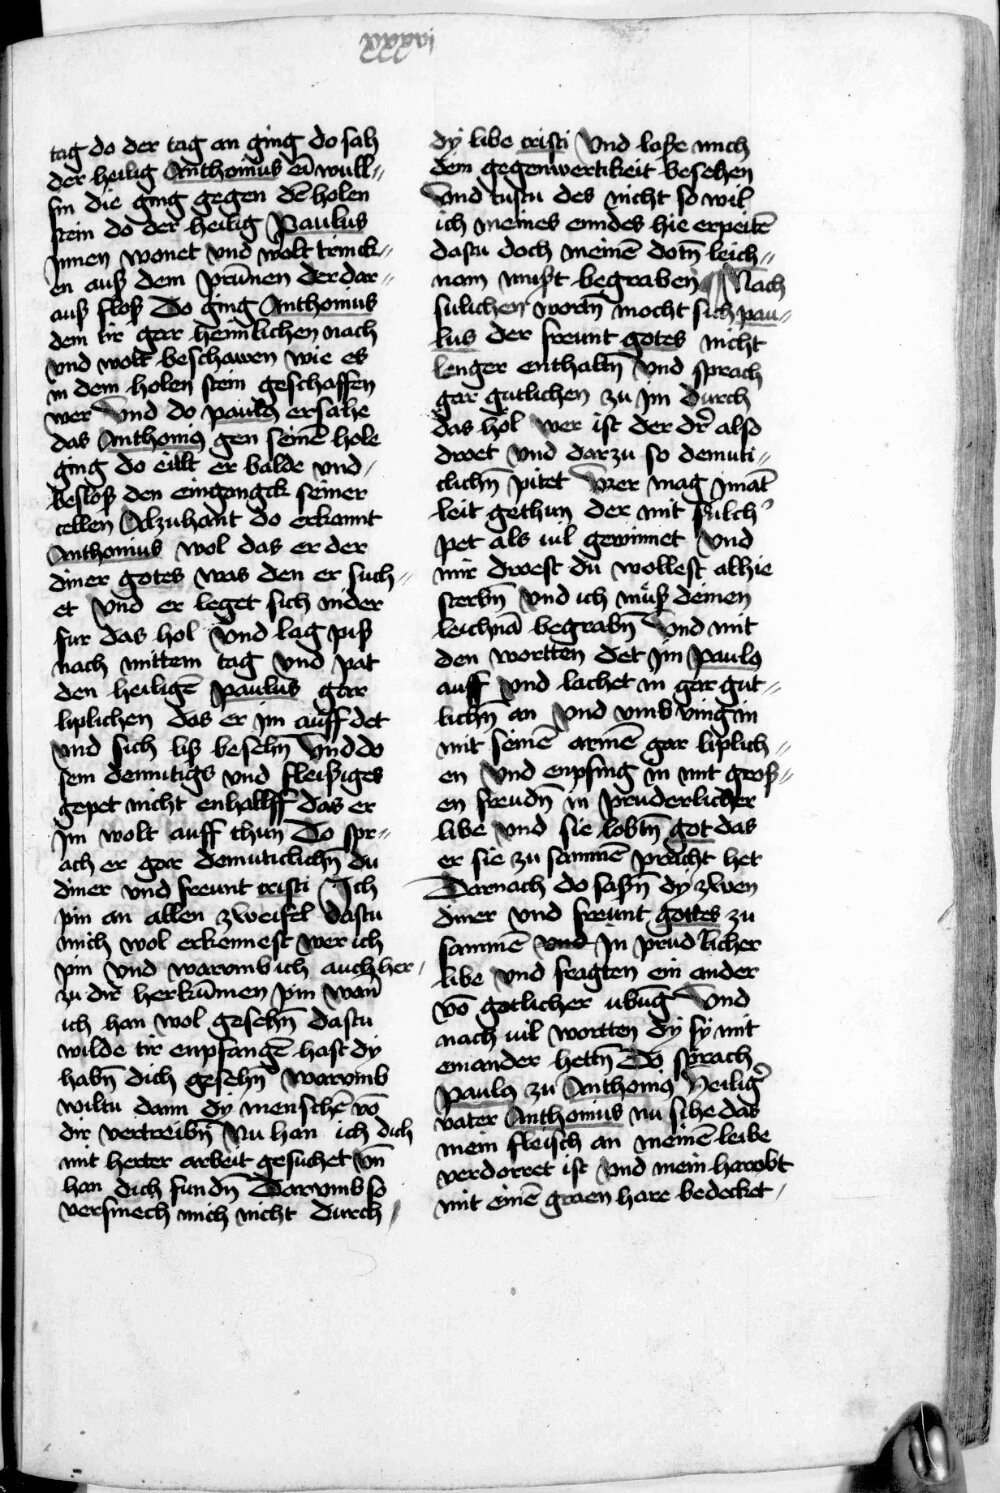 xxxvi
tag do der tag an ging do sah
der heilig Anthonius ein̄ wull⸗
fin die ging gegen dē holen
stein do der heilig Paulus
Jnnen wonet vnd wolt trinck⸗
en auß dem prūnen der dar⸗
auß floß Do ging Anthonius
dem tir gar heimlichen nach
vnd wolt beschawen wie es
in dem holen stein geschaffen
wer Vnd do paulꝰ ersahe
das Anthoniꝰ gen seinē hole
ging do eillt er balde vnd
besloß den eingangck seiner
cellen Alzuhant do erkannt
Anthonius wol das er der
diner gotes was den er such⸗
et Vnd er leget sich nider
fur das hol Vnd lag piß
nach mittem tag Vnd pat
den heiligē paulus gar
liplichen das er jm auff det
Vnd sich liß besehn̄ Vnd do
sein demutigs vnd fleißiges
gepet nicht enhallff das er
Jm wolt auff thun Do spr⸗
ach er gar demuticlichn̄ du
diner vnd freunt cristi Ich
pin an allen zweifel dastu
mich wol erkennest wer ich
pin vnd warvmb ich auch her⸗
zu dir herkūmen pin wan̄
ich han wol gesehn̄ dastu
wilde tir enpfangē hast dy
habn̄ dich gesehn̄ warvmb
wiltu dann dy menschē vō
dir vertreibn̄ Nu han ich dich
mit herter arbeit gesuchet vn̄
han dich fundn̄ Darvmb so
versmech mich nicht durch
dy libe cristi Vnd loße mich
dein gegenwertikeit besehen
Vnd tustu des nicht so wil
ich meines enndes hie erpeitē
dastu doch meinē dotn̄ leich⸗
nam must begraben Nach
sulichen wortn̄ mocht sich pau⸗
lus der freunt gotes nicht
lenger enthaltn̄ Vnd sprach
gar gutlichen zu jm Durch
das hol wer ist der dr̄ also
droet Vnd darzu so demuti⸗
clichn̄ pitet Wer mag jmāt
leit gethun der mit sulch̉
pet als vil gewinnet Vnd
mir droest du wollest alhie
sterbn̄ Vnd ich muß deinen
leichnā begrabn̄ Vnd mit
den wortten det jm paulꝰ
auff Vnd lachet in gar gut⸗
lichn̄ an Vnd vmb ving in
mit seinē armē gar liplich⸗
en Vnd enpfing in mit groß⸗
en freudn̄ in pruderlicher
libe Vnd sie lobtn̄ got das
er sie zu sammē pracht het
Darnach do saßn̄ dy zwen
diner Vnd freunt gottes zu
sammē vnd in prud̉licher
libe Vnd fragten ein ander
vō gotlicher ubūg Vnd
nach vil wortten dy sy mit
einander hettn̄ Do sprach
paulꝰ zu Anthoniꝰ Heilig̉
vater Anthonius nu sihe das
mein fleisch an meinē leibe
verdorret ist Vnd mein hawbt
mit einē graen hare bedecket